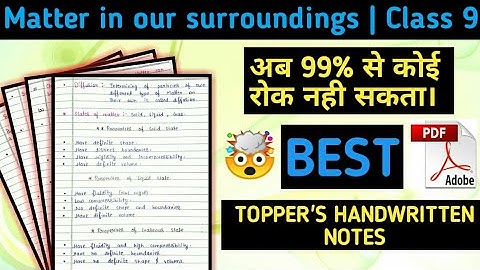 Matter in our surroundings | Class 9
अब 99% से कोई
रोक नही सकता।
BEST
PDF
Adobe
TOPPER'S HANDWRITTEN
NOTES
Diffusion : Intermixing of particles of two
different type of matter on
their own is called diffusion.
States of matter : Solid, Liquid, Gas
* Properties of Solid State
Have definite shape.
Have distinct boundaries.
Have rigidity and incompressibility.
Have definite volume.
* Properties of Liquid State
Have fluidity
Low compressibility.
No definite shape and boundaries.
Have definite volume.
* Properties of Gaseous State
Have fluidity and high compressibility.
Have no definite boundaries
Have no definite shape & volume.